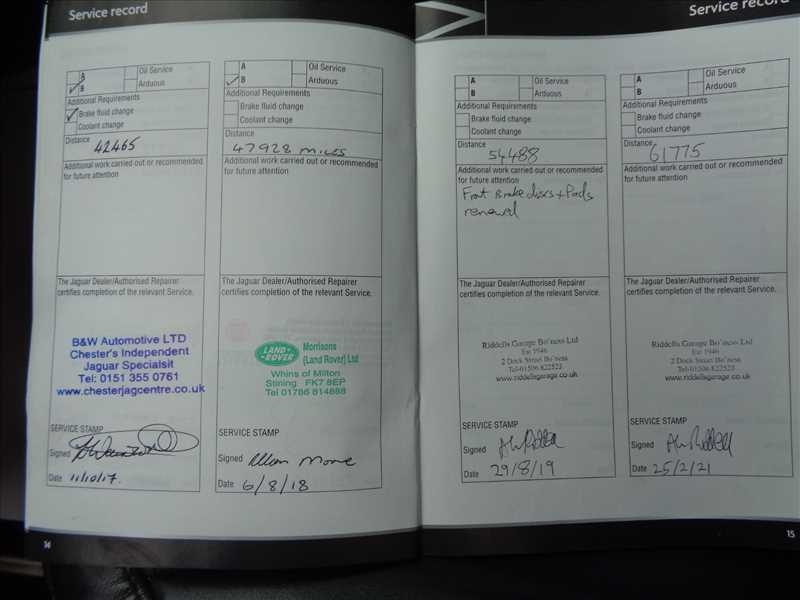 Service record
A
B
Oil Service
Arduous
Additional Requirements
Brake fluid change
Coolant change
Distance
42465
Additional work carried out or recommended
for future attention
The Jaguar Dealer/Authorised Repairer
certifies completion of the relevant Service.
B&W Automotive LTD
Chester's Independent
Jaguar Specialsit
Tel: 0151 355 0761
www.chesterjagcentre.co.uk
SERVICE STAMP
Signed
Date 11/10/17.
A
B
Oil Service
Arduous
Additional Requirements
Brake fluid change
Coolant change
Distance
47928 miles
Additional work carried out or recommended
for future attention
The Jaguar Dealer/Authorised Repairer
certifies completion of the relevant Service.
LAND-
ROVER
Morrisons
(Land Rover) Ltd
Whins of Milton
Stirling FK7 8EP
Tel 01786 814888
SERVICE STAMP
Signed
Date 6/8/18
14
Service record
A
B
Oil Service
Arduous
Additional Requirements
Brake fluid change
Coolant change
Distance
54488
Additional work carried out or recommended
for future attention
Front Brake discs + Pads
renewal
The Jaguar Dealer/Authorised Repairer
certifies completion of the relevant Service.
Riddells Garage Bo'ness Ltd
Est 1946
2 Dock Street Bo'ness
Tel-01506 822523
www.riddellsgarage.co.uk
SERVICE STAMP
Signed
Date 29/8/19
A
B
Oil Service
Arduous
Additional Requirements
Brake fluid change
Coolant change
Distance
61775
Additional work carried out or recommended
for future attention
The Jaguar Dealer/Authorised Repairer
certifies completion of the relevant Service.
Riddells Garage Bo'ness Ltd
Est 1946
2 Dock Street Bo'ness
Tel-01506 822523
www.riddellsgarage.co.uk
SERVICE STAMP
Signed
Date 25/2/21
15